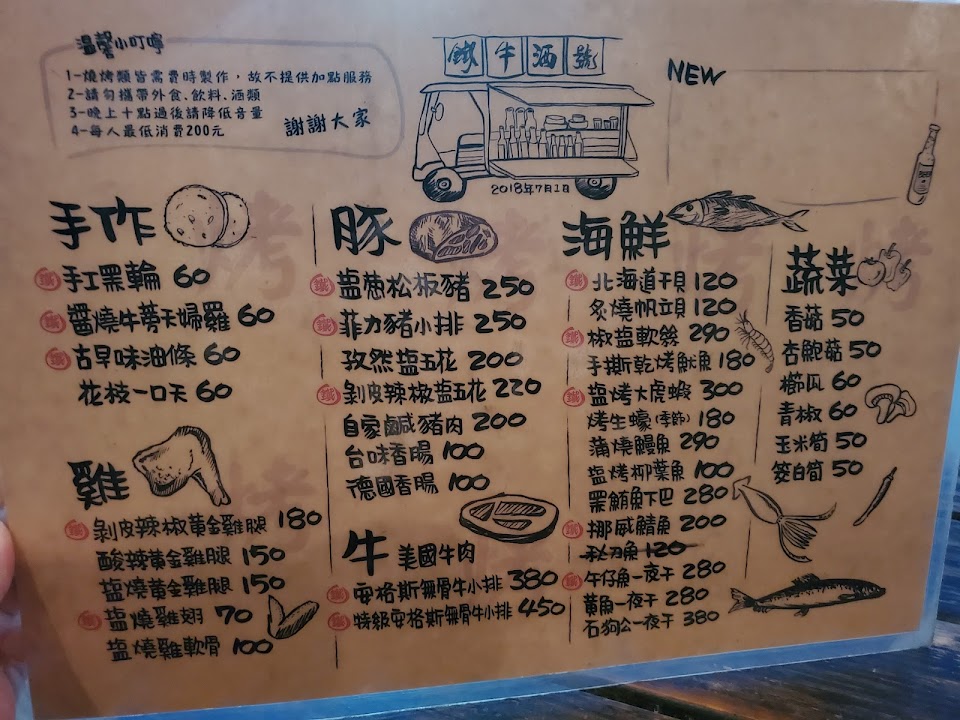 溫馨小叮嚀
1-燒烤類皆需費時製作，故不提供加點服務
2-請勿攜帶外食.飲料.酒類
3-晚上十點過後請降低音量
4-每人最低消費200元
謝謝大家
鐵牛酒號
2018年7月1日
NEW
BEER
手作
鐵 手工黑輪 60
鐵 醬燒牛蒡天婦羅 60
鐵 古早味油條 60
花枝一口天 60
雞
鐵 剝皮辣椒黃金雞腿 180
酸辣黃金雞腿 150
塩燒黃金雞腿 150
鐵 塩燒雞翅 70
塩燒雞軟骨 100
豚
鐵 塩蔥松板豬 250
鐵 菲力豬小排 250
孜然塩五花 200
鐵 剝皮辣椒塩五花 220
自家鹹豬肉 200
台味香腸 100
德國香腸 100
牛 美國牛肉
鐵 安格斯無骨牛小排 380
鐵 特級安格斯無骨牛小排 450
海鮮
鐵 北海道干貝 120
炙燒帆立貝 120
鐵 椒塩軟絲 290
手撕乾烤魷魚 180
鐵 塩烤大虎蝦 300
烤生蠔(季節) 180
蒲燒鰻魚 290
塩烤柳葉魚 100
黑鮪魚下巴 280
鐵 挪威鯖魚 200
秋刀魚 120
鐵 午仔魚一夜干 280
黃魚一夜干 280
石狗公一夜干 380
蔬菜
香菇 50
杏鮑菇 50
櫛瓜 60
青椒 60
玉米筍 50
筊白筍 50
烤
烤
烤
烤